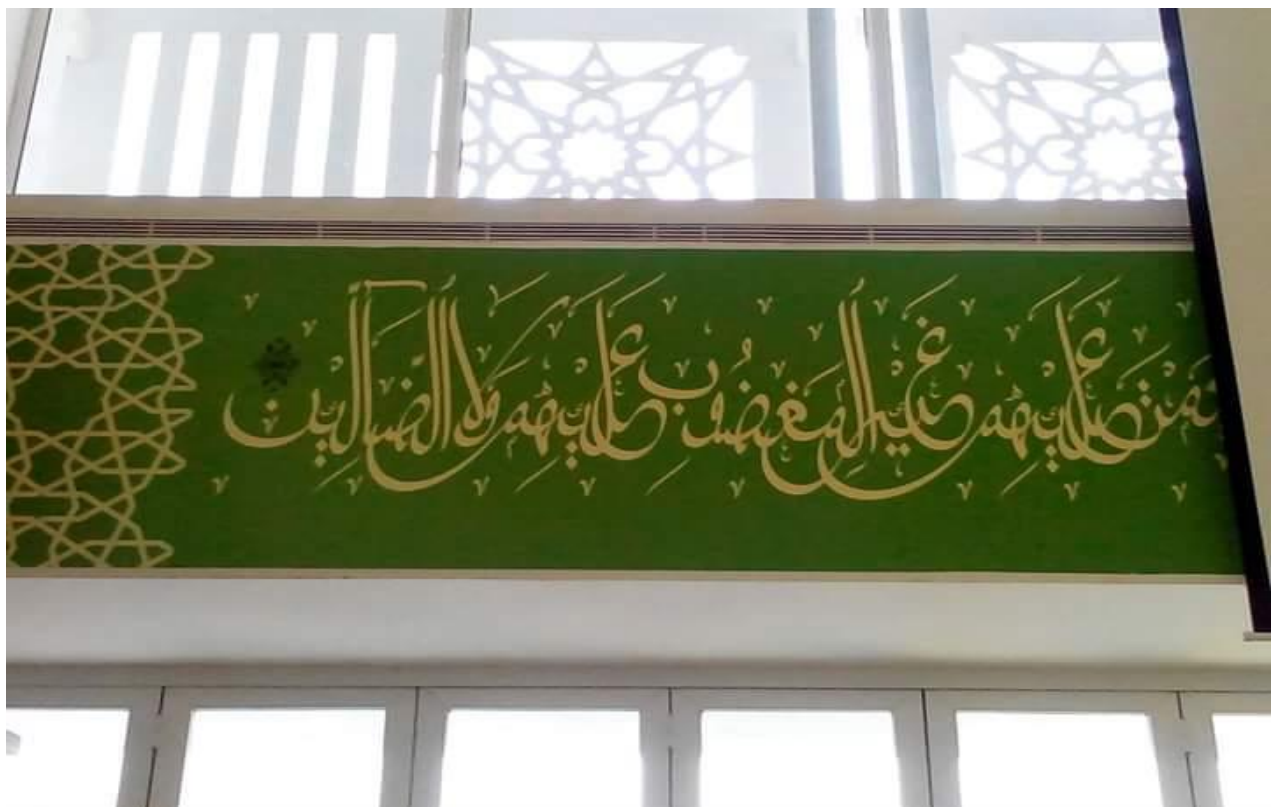 عَلَيْهِمْ غَيْرِ الْمَغْضُوبِ عَلَيْهِمْ وَلَا الضَّالِّينَ